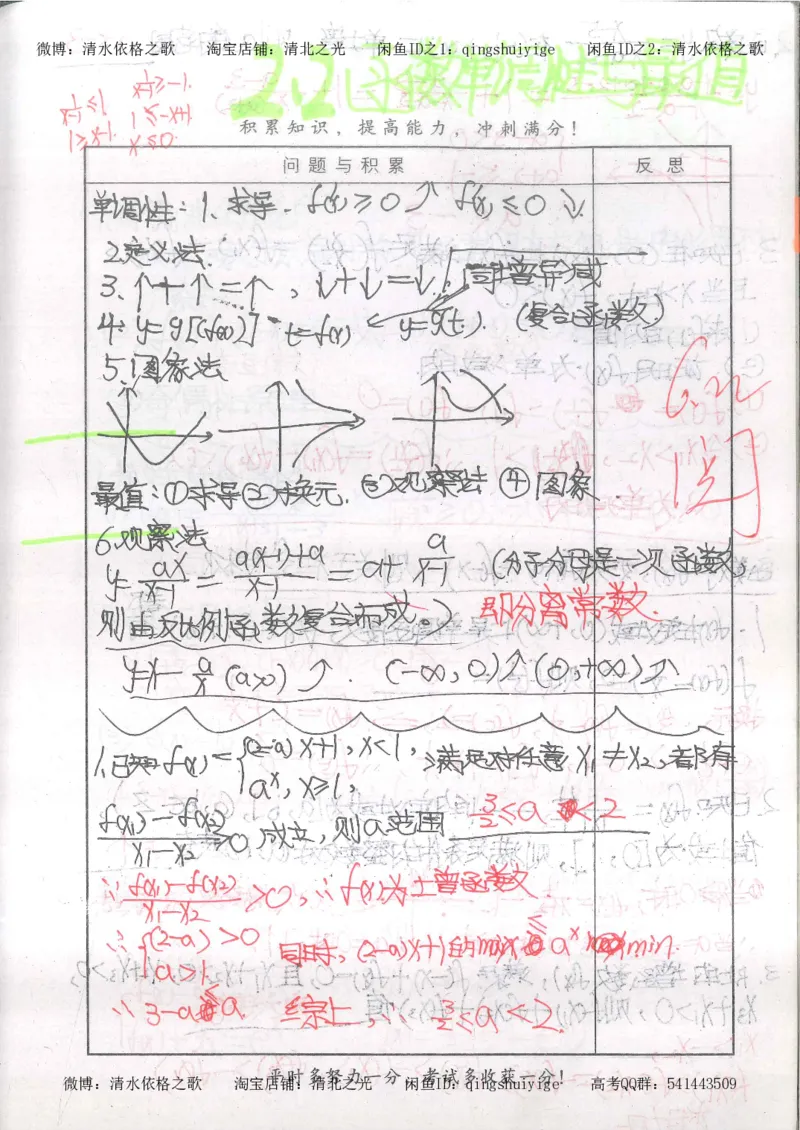 微博：清水依格之歌 淘宝店铺：清北之光 闲鱼ID之1：qingshuiyige 闲鱼ID之2：清水依格之歌
2.2函数单调性与最值
1/(x-1)≤1
1≥x-1.
1/(x-1)≥-1.
1≤-x+1
x≤0.
积累知识，提高能力，冲刺满分！
问题与积累 反思
单调性：1、求导. f(x)≥0↗ f(x)≤0↘.
2.定义法.
3、↑+↑=↑，↓+↓=↓. 同增异减
4、y=g[f(x)] t=f(x) y=g(t). (复合函数)
5.图象法
6.22
阅
最值：①求导②换元. ③观察法 ④图象.
6.观察法
y=ax/(x-1)=(a(x-1)+a)/(x-1)=a+a/(x-1) (分子分母是一次函数,
则由反比例函数复合而成。) 即分离常数.
y=x-a/x (a>0)↗. (-∞,0)↑(0,+∞)↗
1.已知f(x)={(2-a)x+1,x<1, a^x,x≥1, 满足对任意x₁≠x₂,都有
(f(x₁)-f(x₂))/(x₁-x₂)>0成立,则a范围 3/2≤a<2
∵(f(x₁)-f(x₂))/(x₁-x₂)>0,∴f(x)为增函数
∴{(2-a)>0 a>1 同时,(2-a)x+1的max≤a^x min.
∴3-a≤a. 综上,∴3/2≤a<2.
平时多努力一分，考试多收获一分！
微博：清水依格之歌 淘宝店铺：清北之光 闲鱼ID之1：qingshuiyige 高考QQ群：541443509